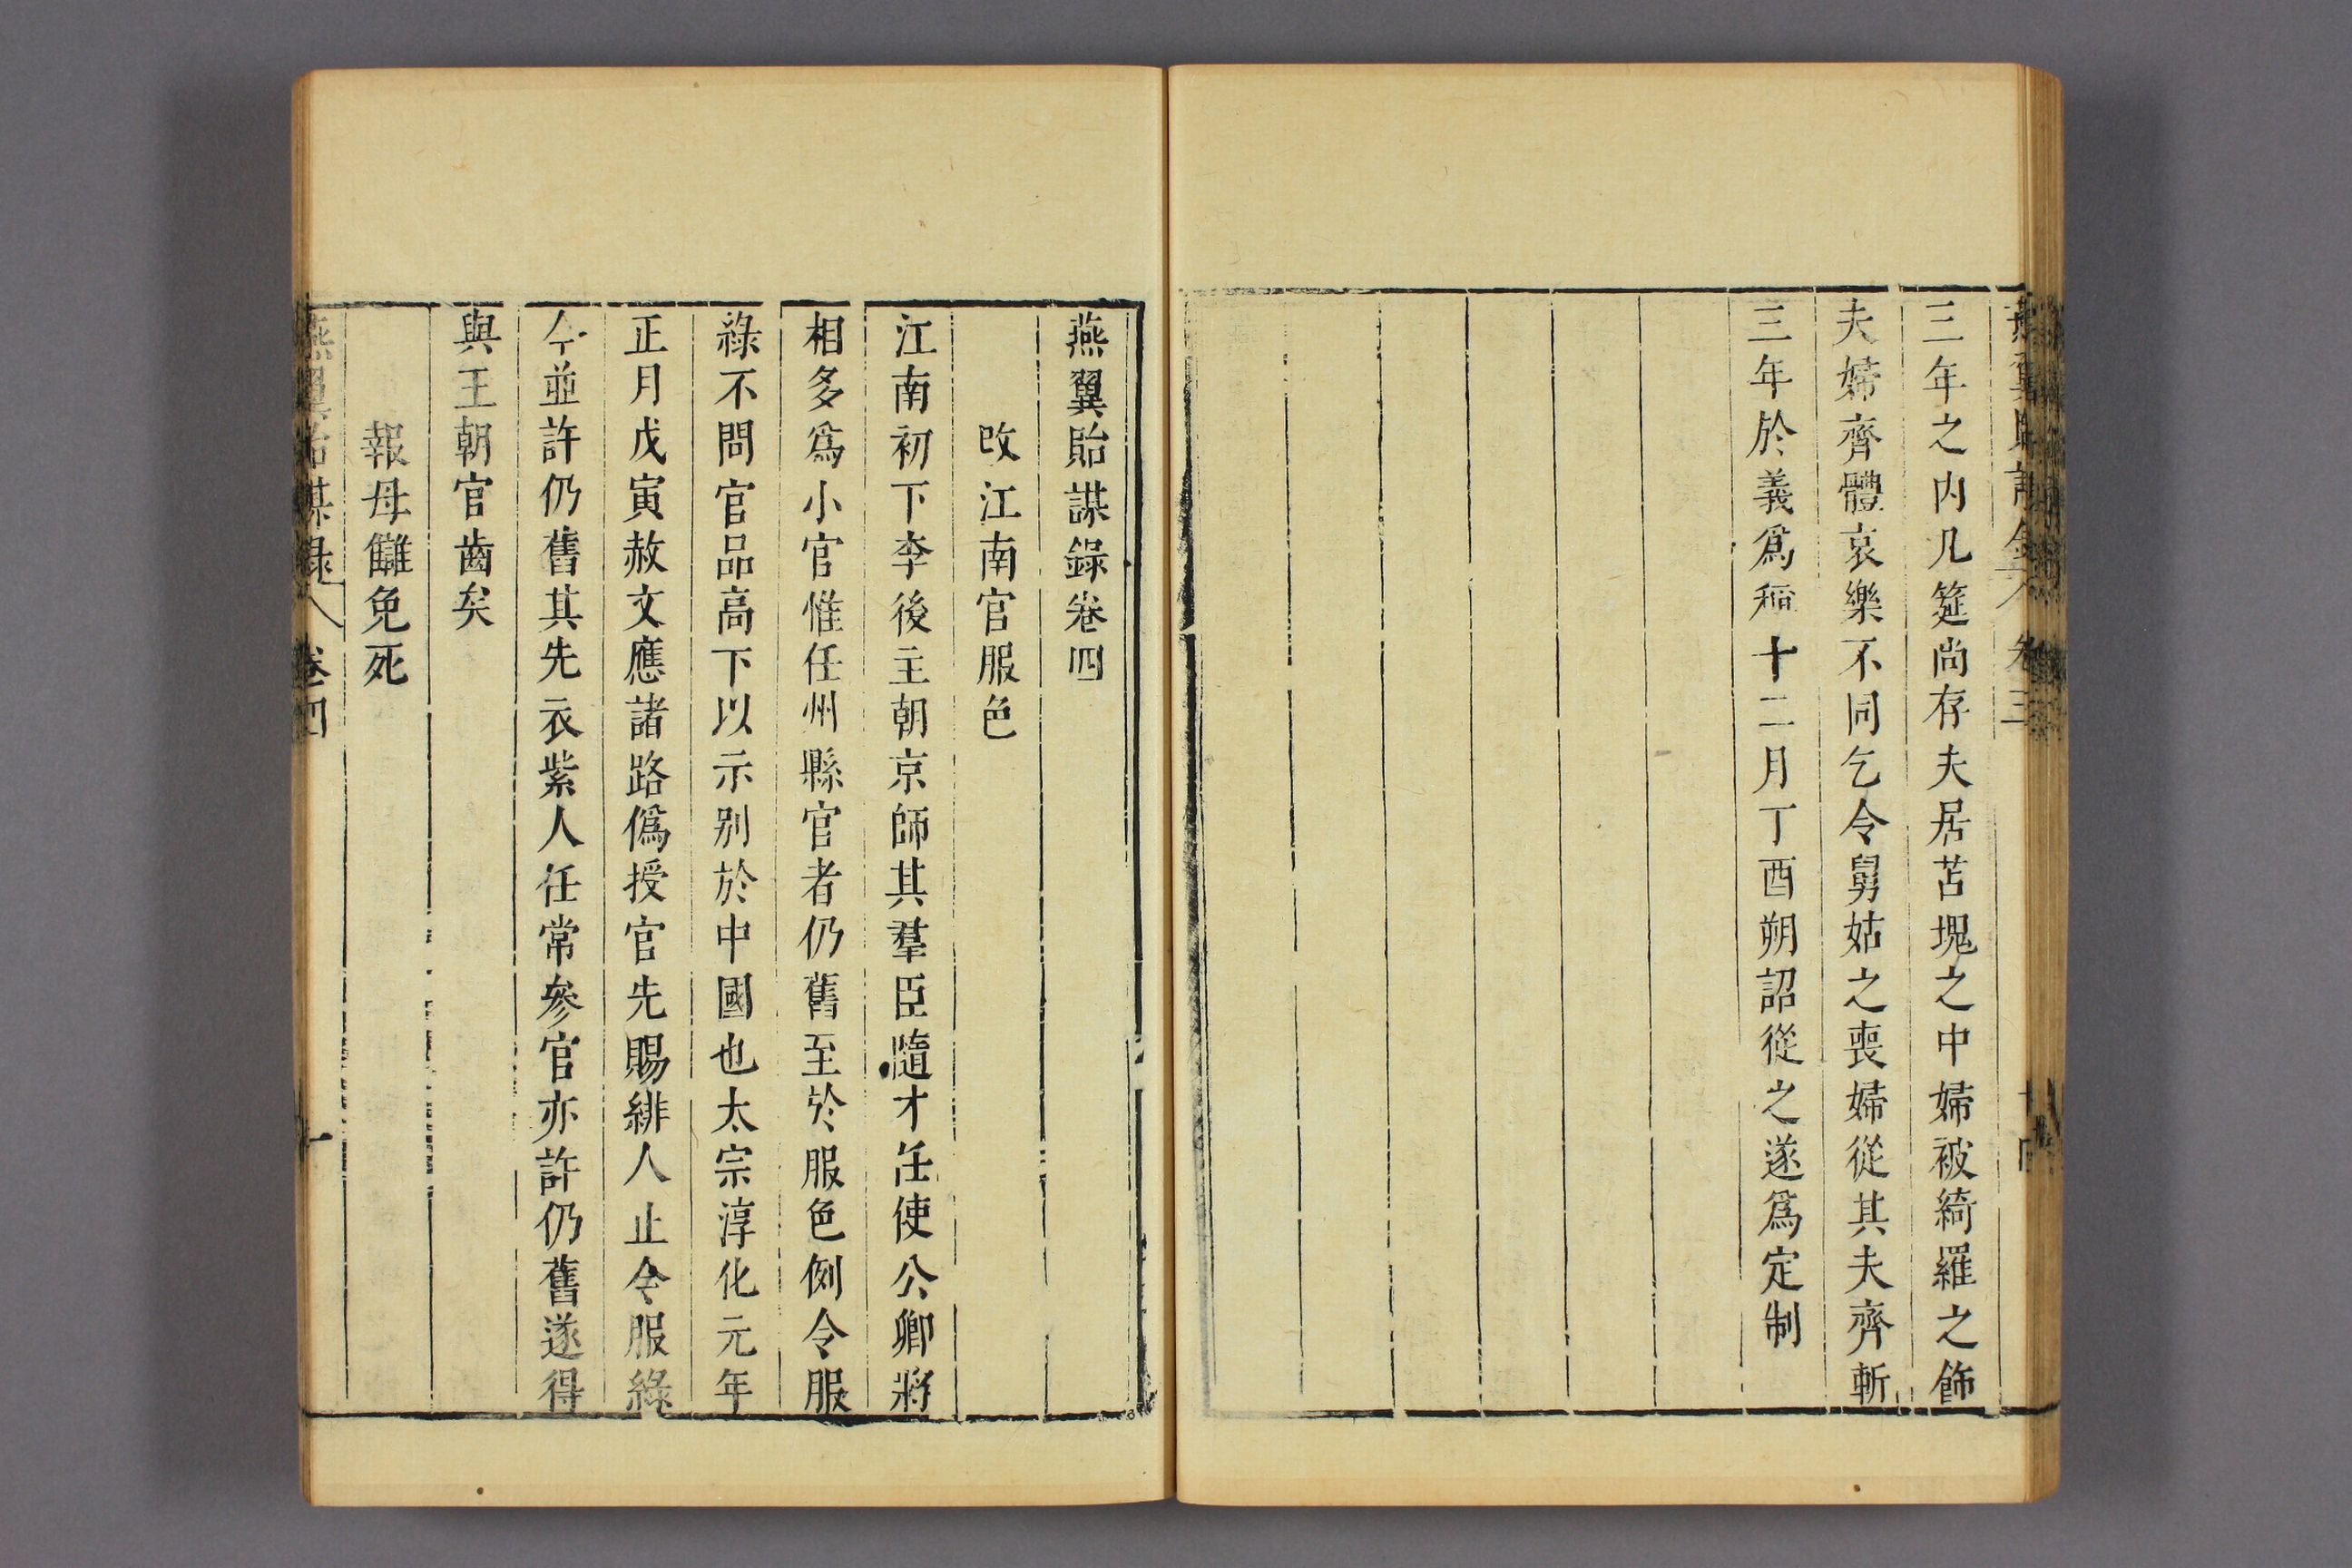 燕翼貽謀錄 卷三
三年之内几筵尚存夫居苫塊之中婦被綺羅之飾
夫婦齊體哀樂不同乞令舅姑之喪婦從其夫齊斬
三年於義爲稱十二月丁酉朔詔從之遂爲定制
燕翼貽謀錄卷四
改江南官服色
江南初下李後主朝京師其羣臣隨才任使公卿將
相多爲小官惟任州縣官者仍舊至於服色例令服
綠不問官品高下以示别於中國也太宗淳化元年
正月戊寅赦文應諸路僞授官先賜緋人止令服綠
今並許仍舊其先衣紫人任常參官亦許仍舊遂得
與王朝官齒矣
報母讎免死
燕翼貽謀錄 卷四 一